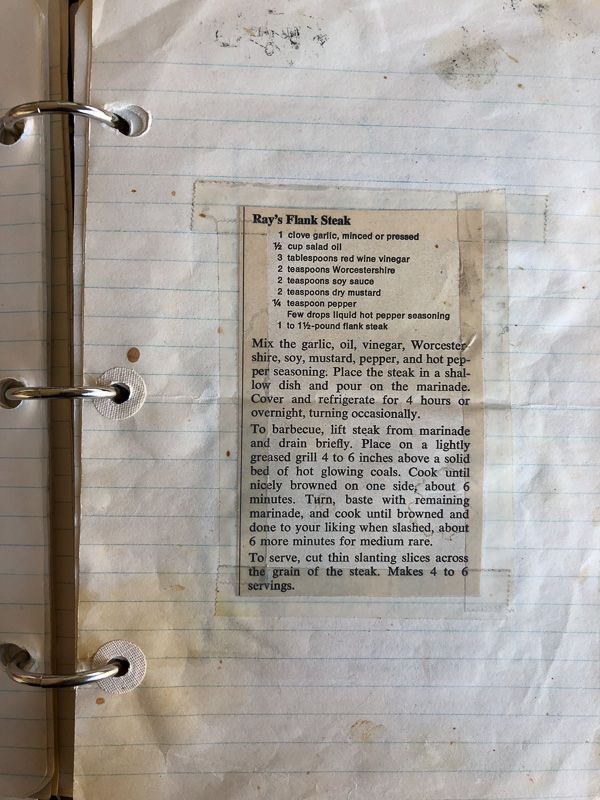 Ray's Flank Steak
1 clove garlic, minced or pressed
½ cup salad oil
3 tablespoons red wine vinegar
2 teaspoons Worcestershire
2 teaspoons soy sauce
2 teaspoons dry mustard
¼ teaspoon pepper
Few drops liquid hot pepper seasoning
1 to 1½-pound flank steak
Mix the garlic, oil, vinegar, Worcester-
shire, soy, mustard, pepper, and hot pep-
per seasoning. Place the steak in a shal-
low dish and pour on the marinade.
Cover and refrigerate for 4 hours or
overnight, turning occasionally.
To barbecue, lift steak from marinade
and drain briefly. Place on a lightly
greased grill 4 to 6 inches above a solid
bed of hot glowing coals. Cook until
nicely browned on one side, about 6
minutes. Turn, baste with remaining
marinade, and cook until browned and
done to your liking when slashed, about
6 more minutes for medium rare.
To serve, cut thin slanting slices across
the grain of the steak. Makes 4 to 6
servings.